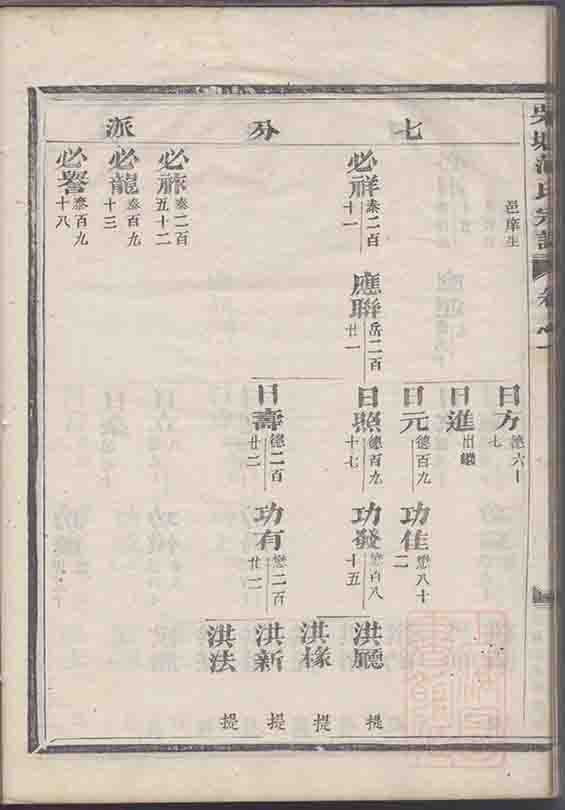 七分派
邑庠生
必祥 泰二百十一
必祚 泰二百五十二
必龍 泰百九十三
必譽 泰百九十八
應聯 岳二百廿一
日方 德六十七
日進 出繼
日元 德百九
日照 德百九十七
日壽 德二百廿二
功佳 懋八十二
功發 懋百八十五
功有 懋二百廿二
洪廳 提
洪椽 提
洪新 提
洪法 提
氏宗譜 卷之一